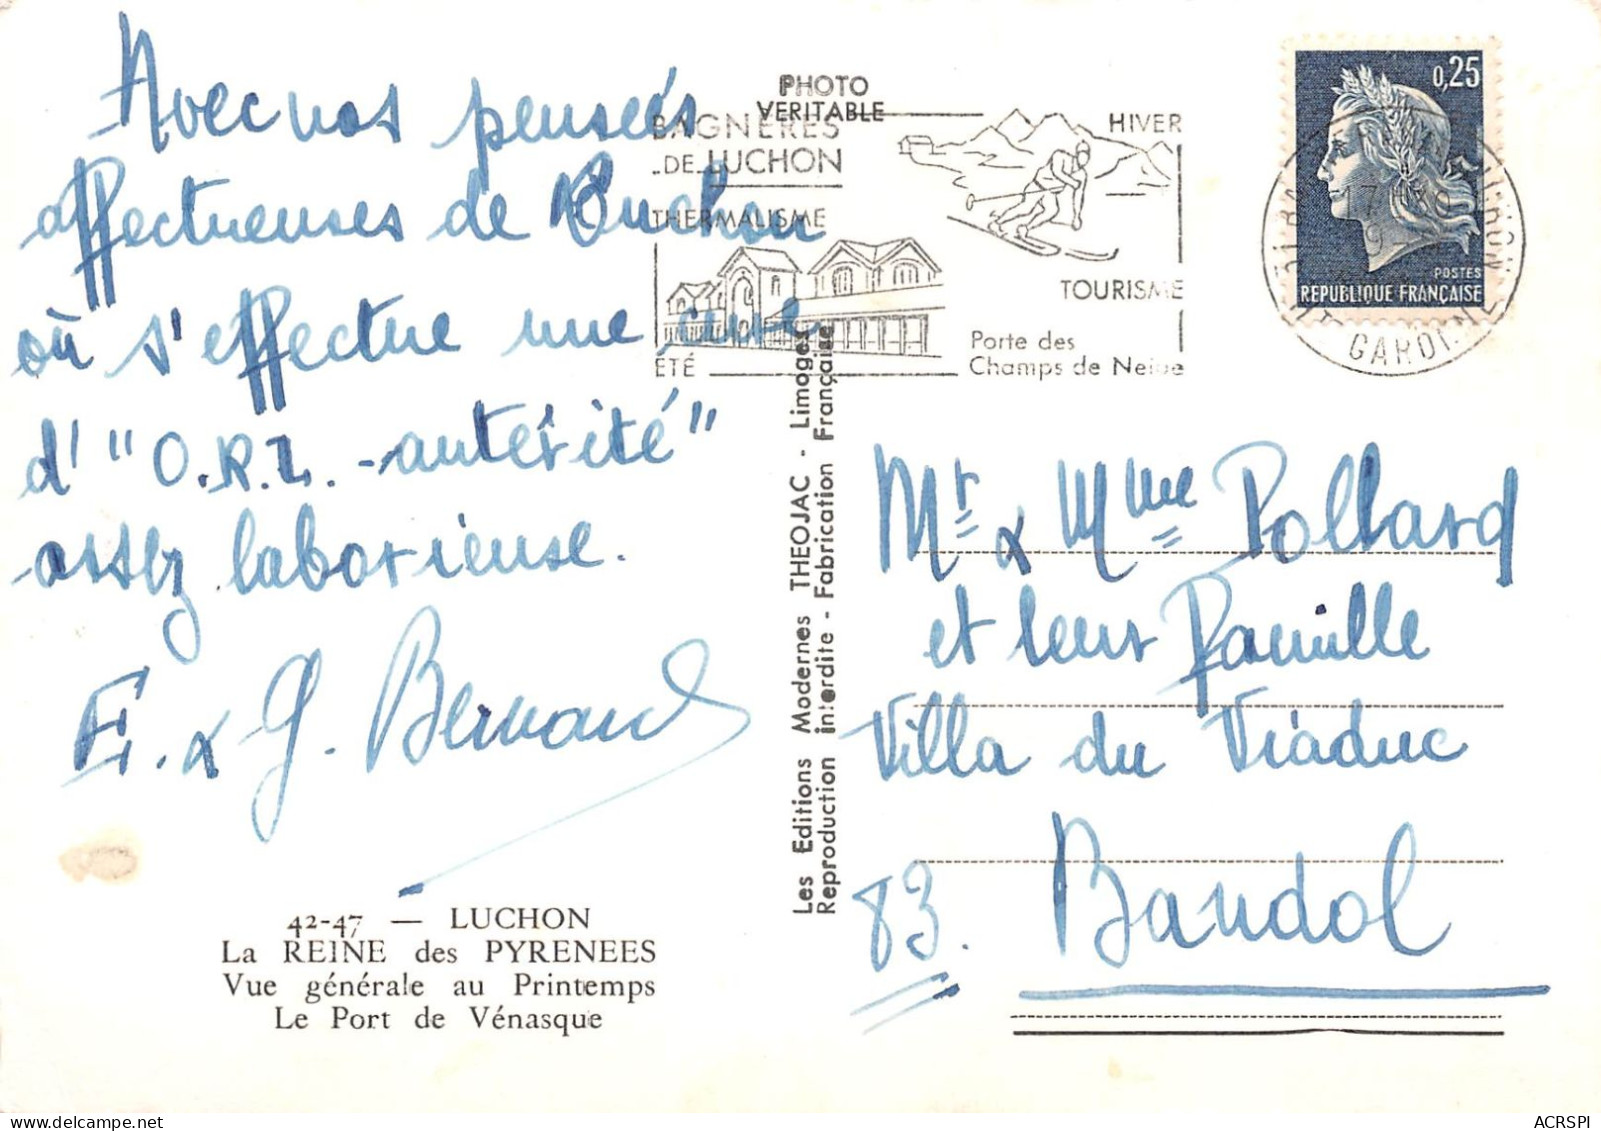 Avec nos pensées
affectueuses de Luchon
où s'effectue une cure
d'"O.R.L. - autérité"
assez laborieuse.
E. & G. Bernand
42-47 — LUCHON
La REINE des PYRENEES
Vue générale au Printemps
Le Port de Vénasque
PHOTO
VERITABLE
Les Editions Modernes THEOJAC - Limoges
Reproduction interdite - Fabrication Française
BAGNÈRES
DE LUCHON
THERMALISME
ÉTÉ
HIVER
TOURISME
Porte des
Champs de Neige
0,25
POSTES
REPUBLIQUE FRANÇAISE
Mr & Mme Pollard
et leur famille
Villa du Viaduc
83. Bandol
ACRSPI